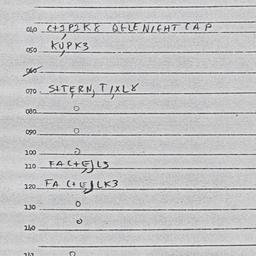 040 C+2P2K8 QELE NIGHT CAP
050 KUPK3
060
070 S+TERN, T/XL8
080 O
090 O
100 O
110 FA(+E)L3
120 FA (+E)LK3
130 O
140 O
O